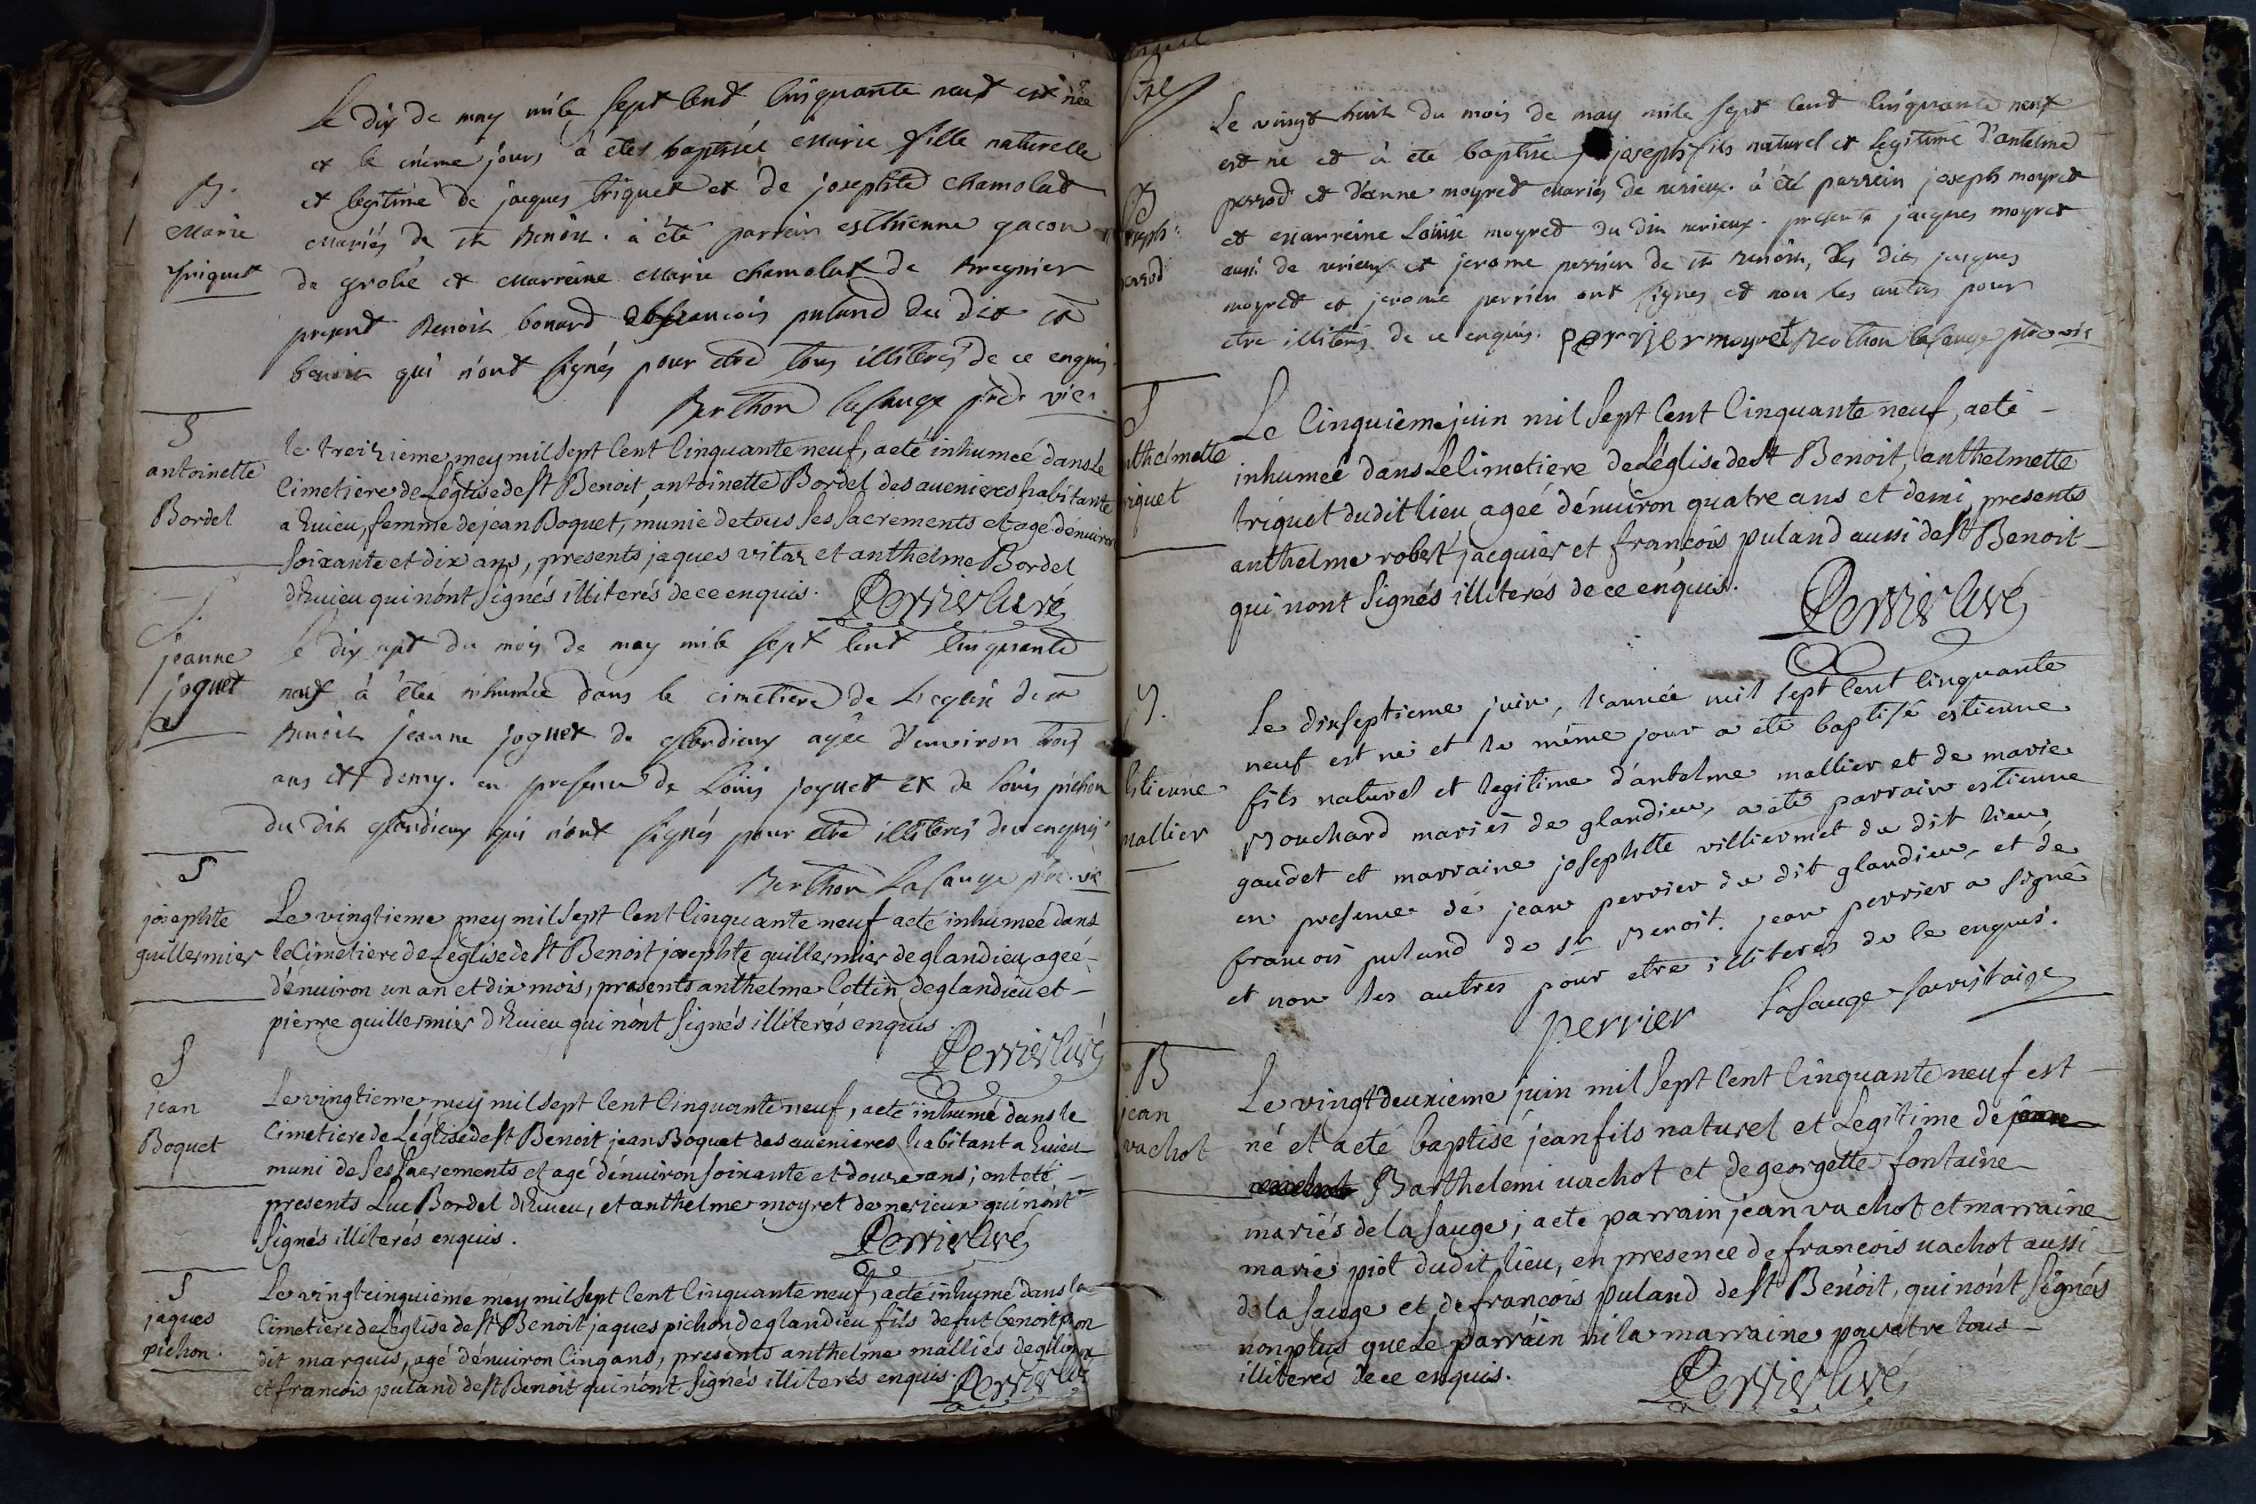 Le dix de may mile sept cent cinquante neuf est née
et le même jours à etés baptisée Marie fille naturelle
et legitime de jacques triquet et de josephte chamolat
Mariés de st Benoit. à été parrein esthienne gacon
de grolié et Marreine Marie chamolat de Bregnier
present Benoit bonard et francois puland du dit st
benoit qui n'ont signés pour etre tous illiterés de ce enquis
Berthon lasauge ptre vic.
B.
Marie
triquet
S
antoinette
Bordel
le treizieme mey mil sept cent cinquante neuf, a eté inhumeé dans le
Cimetiere de L'église de st Benoit, antoinette Bordel des auenieres habitante
a Euieu, femme de jean Boquet, munie de tous ses sacrements et agé d'enuiron
soixante et dix ans, presents jaques vitaz et anthelme Bordel
d'Euieu qui n'ont signés illiterés de ce enquis. Perrier Curé
S.
jeanne
joguet
le dix sept du mois de may mile sept cent cinquante
neuf à étée inhumée dans le cimetiere de L'eglise de st
Benoit jeanne joguet de glandieux agée d'environ trois
ans et demy. en presence de Loüis joguet et de Louis pichon
du dit glandieux qui n'ont signés pour etre illiterés de ce enquis
Berthon Lasauge ptre. vic
S
josephte
guillermier
Le vingtieme mey mil sept cent cinquante neuf a eté inhumeé dans
le Cimetiere de L'église de st Benoit josephte guillermier de glandieu, ageé
d'enuiron un an et dix mois, presents anthelme Cottin de glandieu et
pierre guillermier d'Euieu qui n'ont signés illiterés enquis.
Perrier Curé
S
jean
Boquet
Le vingtieme mey mil sept cent cinquante neuf, a eté inhumé dans le
Cimetiere de L'église de st Benoit jean Boquet des auenieres habitant a Euieu
muni de ses sacrements et agé d'enuiron soixante et douze ans; ont eté
presents Luc Bordel d'Euieu, et anthelme moyret de nerieux qui n'ont
signés illiterés enquis. Perrier Curé
S
jaques
pichon.
Le vingtcinquieme mey mil sept cent cinquante neuf, a eté inhumé dans le
Cimetiere de L'église de st Benoit jaques pichon de glandieu fils de fut benoit
dit marquis, agé d'enuiron cinq ans, presents anthelme malliés de
et francois puland de st Benoit qui n'ont signés illiterés enquis. Perrier Curé
Le vingt huit du mois de may mile sept cent cinquante neuf
est né et à eté baptisé joseph fils naturel et legitime d'antelme
perrod et d'anne moyret Mariés de nerieux. à été parrein joseph moyret
et Marreine Loüise moyret du dit nerieux. presents jacques moyret
aussi de nerieux et jerome perrier de st Benoit, les dits jacques
moyret et jerome perrier ont signes et non les autres pour
etre illiterés de ce enquis. perrier moyret Berthon lasauge ptre vic
B
joseph
perrod
S
anthelmette
triquet
Le cinquieme juin mil sept cent cinquante neuf, a eté
inhumeé dans le Cimetiere de L'église de st Benoit, anthelmette
triquet dudit lieu ageé d'enuiron quatre ans et demi, presents
anthelme robert jacquier et francois puland aussi de st Benoit
qui nont signés illiterés de ce enquis. Perrier Curé
B.
Estienne
mallier
Le dixseptieme juin, l'année mil sept cent cinquante
neuf est né et le même jour a eté baptisé estienne
fils naturel et legitime d'antelme mallier et de marie
Mouchard mariés de glandieu, a eté parrain estienne
gaudet et marraine josephtte villiermet du dit lieu,
en presence de jean perrier du dit glandieu, et de
francois puland de st Benoit. jean perrier a signé
et non les autres pour etre illiterés de ce enquis.
perrier Lasauge sacristain
B
jean
vachot
Le vingtdeuxieme juin mil sept cent cinquante neuf est
né et a eté baptisé jean fils naturel et Legitime de jean
Barthelemi vachot et de georgette fontaine
mariés de la sauge; a eté parrain jean vachot et marraine
marie piot dudit lieu, en presence de francois vachot aussi
de la sauge et de francois puland de st Benoit, qui nont signés
non plus que le parrain ni la marraine pour etre tous
illiterés de ce enquis. Perrier Curé